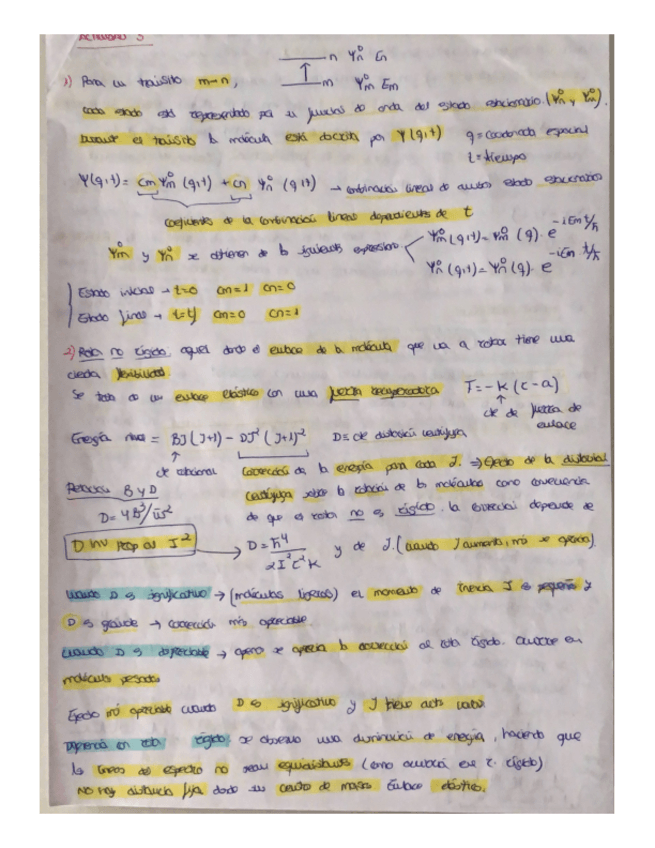 ACTIVIDAD 3
n Ψn⁰ En
1) Para un tránsito m→n, m Ψm⁰ Em
cada estado está representado por su función de onda del estado estacionario (Ψn⁰ y Ψm⁰).
Durante el tránsito la molécula está descrita por Ψ(q,t) q = coordenada espacial
t = tiempo
Ψ(q,t) = cm Ψm⁰ (q,t) + cn Ψn⁰ (q,t) → combinación lineal de ambos estados estacionarios
coeficientes de la combinación lineal dependientes de t
Ψm⁰ y Ψn⁰ se obtienen de la siguiente expresión Ψm⁰(q,t) = Ψm⁰(q) · e^-iEm t/ħ
Ψn⁰(q,t) = Ψn⁰(q) · e^-iEn t/ħ
Estado inicial → t=0 cm=1 cn=0
Estado final → t=tf cm=0 cn=1
2) Rotor no rígido: aquel donde el enlace de la molécula que va a rotar tiene una
cierta flexibilidad.
Se trata de un enlace elástico con una fuerza recuperadora F = -k (r-a)
cte de fuerza de
enlace
Energía nivel = BJ(J+1) - DJ²(J+1)² D ≡ cte distorsión centrífuga
cte rotacional corrección de la energía para cada J. ⇒ Efecto de la distorsión
Relación B y D centrífuga sobre la rotación de las moléculas como consecuencia
D = 4B³/ω̄² de que el rotor no es rígido. La corrección depende de
D inv prop a I² → D = ħ⁴/2I²r²k y de J. (cuando J aumenta, más se aprecia)
cuando D es significativo → (moléculas ligeras) el momento de inercia I es pequeño y
D es grande → corrección más apreciable.
cuando D es despreciable → apenas se aprecia la corrección al rotor rígido. Ocurre en
moléculas pesadas
Efecto más apreciable cuando D es significativo y J tiene altos valores
Diferencia con rotor rígido: se observa una disminución de energía, haciendo que
las líneas del espectro no sean equidistantes (como ocurría en r. rígido)
No hay distancia fija desde su centro de masas. Enlace elástico.